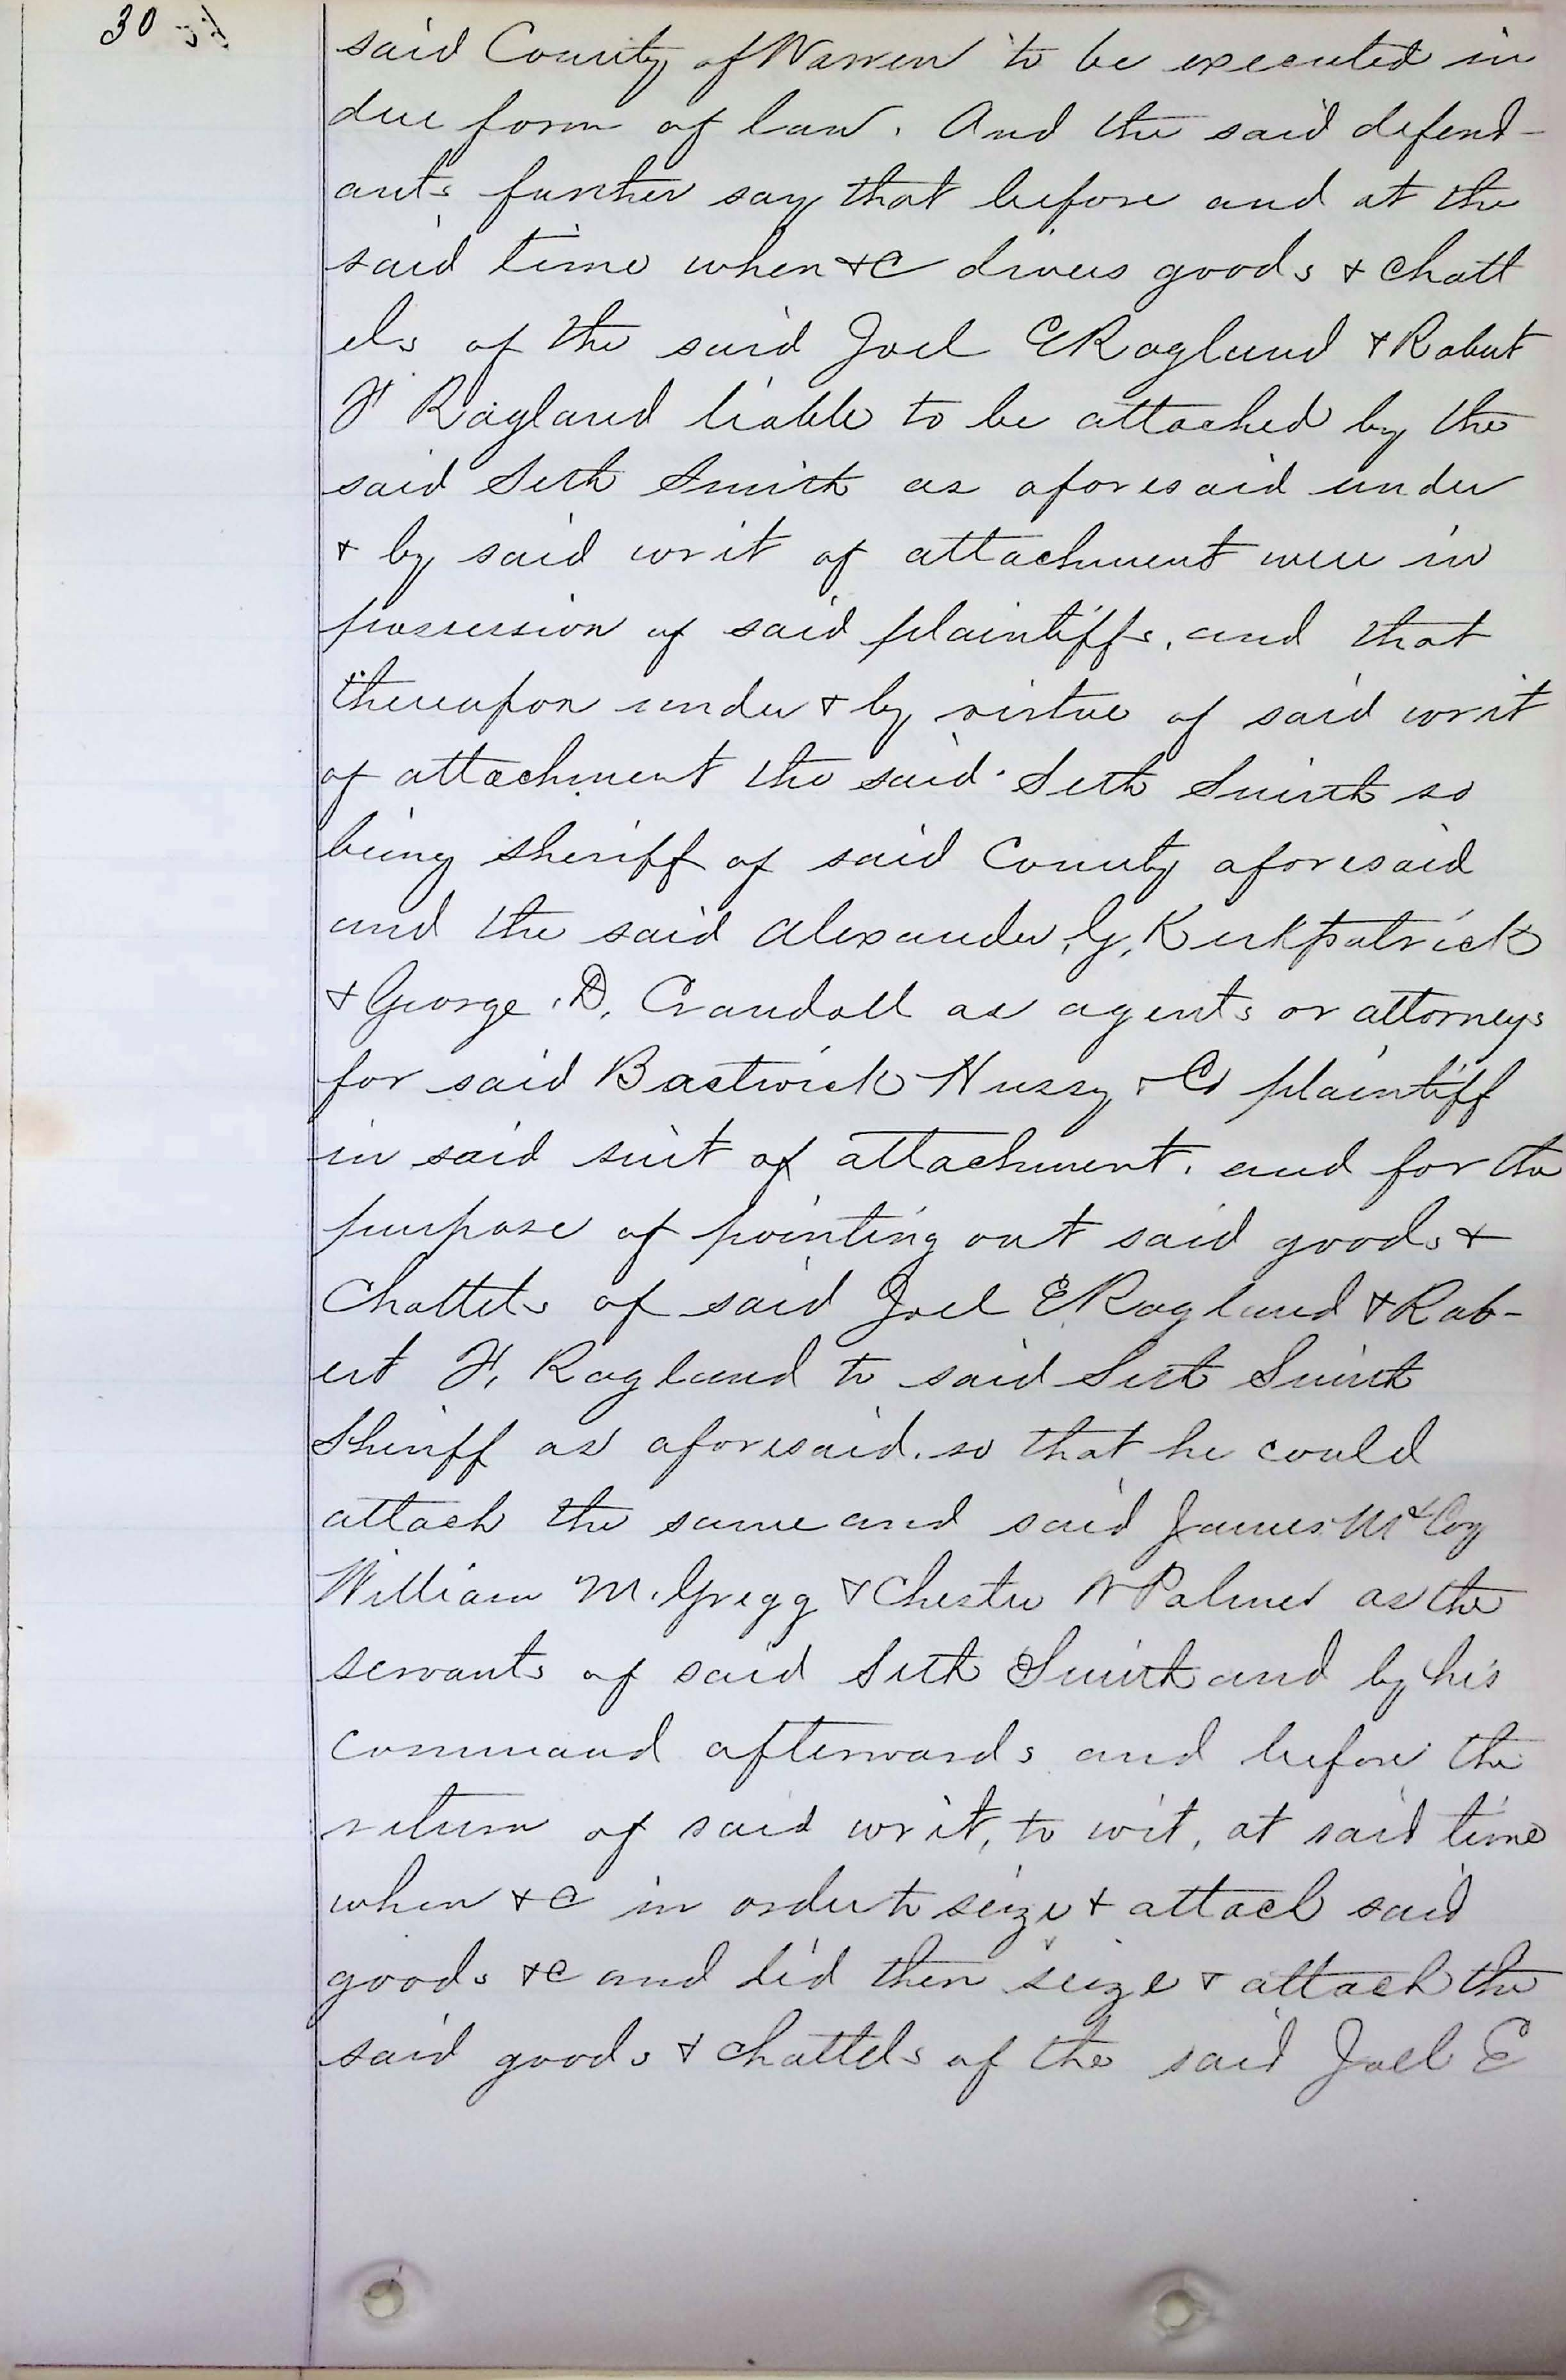 30
said County of Warren to be executed in
due form of law. And the said defend-
ants further say that before and at the
said time when &c divers goods & chatt
els of the said Joel E Ragland & Robert
F Ragland liable to be attached by the
said Seth Smith as aforesaid under
& by said writ of attachment were in
possession of said plaintiffs, and that
thereupon under & by virtue of said writ
of attachment the said Seth Smith so
being Sheriff of said County aforesaid
and the said Alexander, G, Kirkpatrick
& George, D, Crandall as agents or attorneys
for said Bastwick Hussy & Co plaintiff
in said suit of attachment, and for the
purpose of pointing out said goods &
Chattels of said Joel E Ragland & Rob-
ert F, Ragland to said Seth Smith
Sheriff as aforesaid. so that he could
attach the same and said James McCoy
William M. Gregg & Chester W Palmer as the
servants of said Seth Smith and by his
command afterwards and before the
return of said writ, to wit, at said time
when &c in order to seize & attach said
goods &c and did then seize & attach the
said goods & chattels of the said Joel E